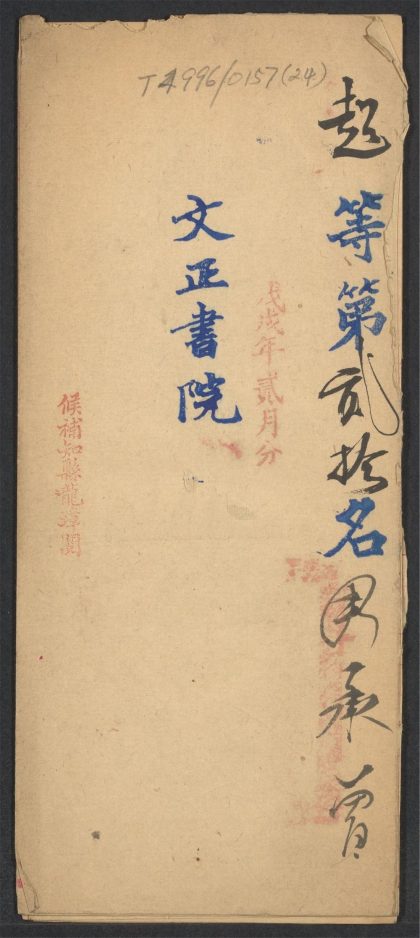 T4996/0157(24)
超等第貳拾名 承
戊戌年貳月分
文正書院
候補知縣龍 閱